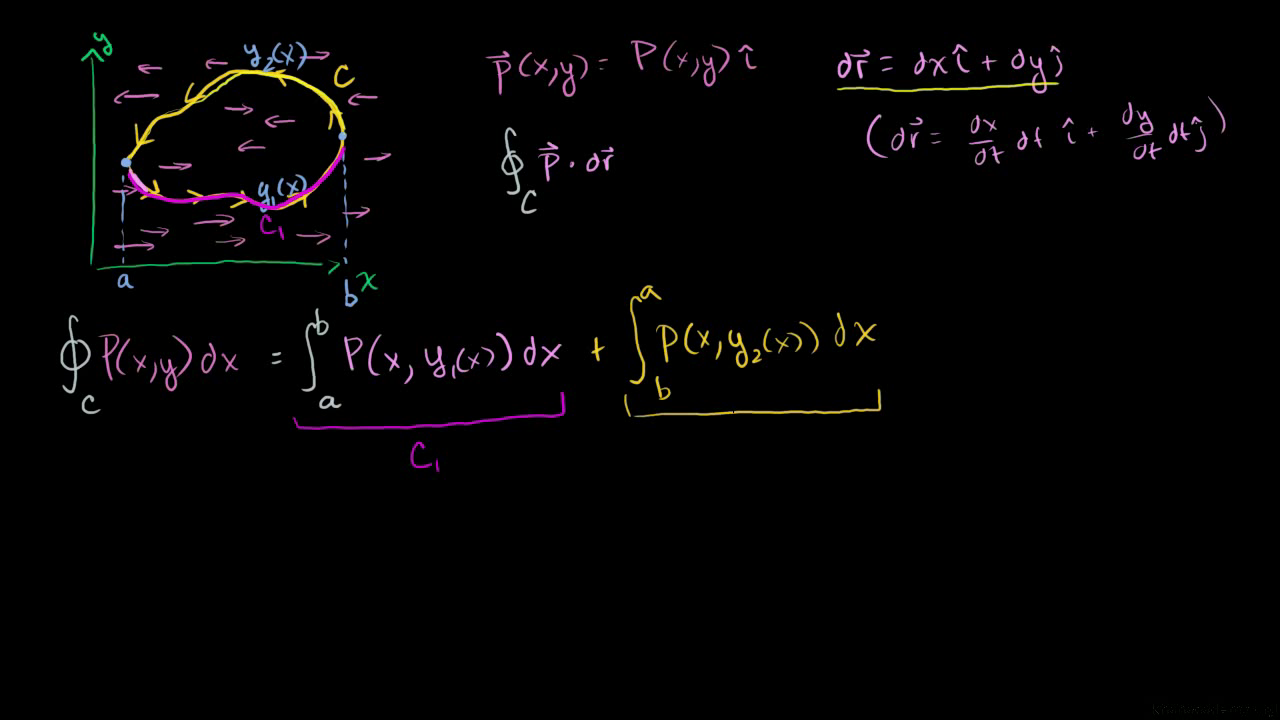 y
y₂(x)
C
y₁(x)
C₁
a
b
x
p⃗(x,y) = P(x,y) î
∮_C p⃗ · dr⃗
dr⃗ = dx î + dy ĵ
(dr⃗ = dx/dt dt î + dy/dt dt ĵ)
∮_C P(x,y) dx = ∫_a^b P(x, y₁(x)) dx + ∫_b^a P(x, y₂(x)) dx
C₁